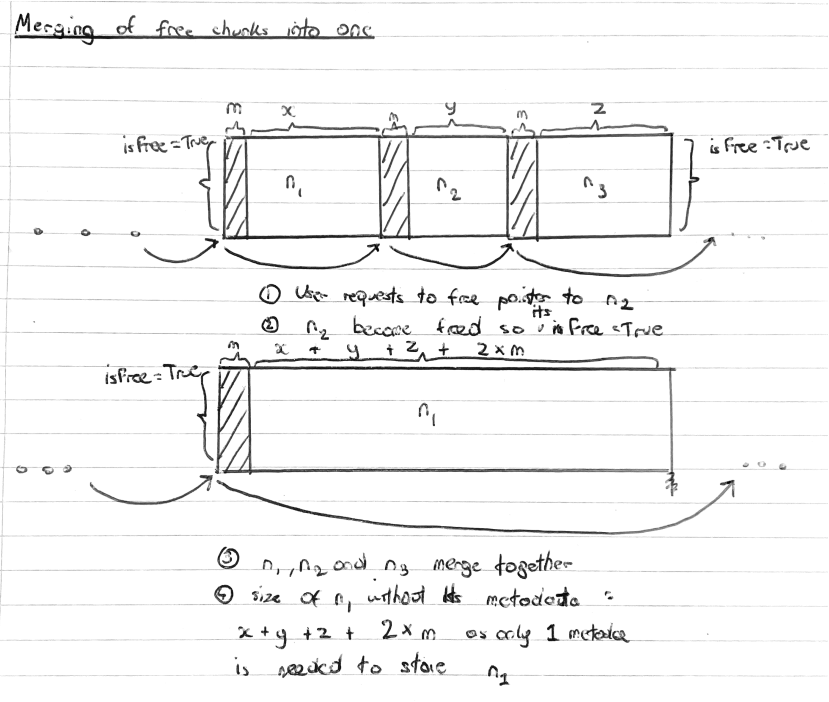 Merging of free chunks into one
m x m y m z
isFree=True isFree=True
n1 n2 n3
① User requests to free pointer to n2
② n2 become freed so its isFree=True
m x + y + z + 2×m
isFree=True
n1
③ n1, n2 and n3 merge together
④ size of n1 without its metadata =
x+y+z + 2×m as only 1 metadata
is needed to store n1